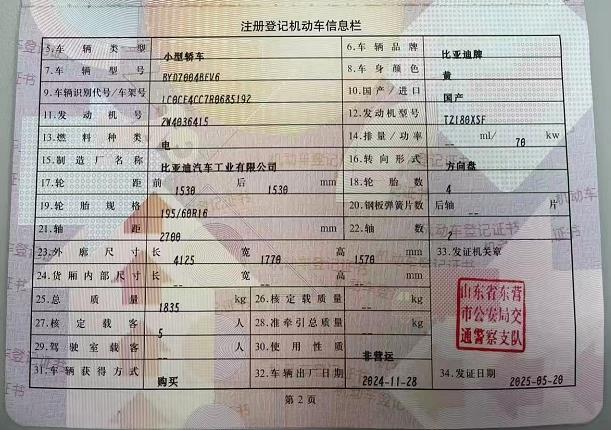 注册登记机动车信息栏
5.车辆类型 小型轿车 6.车辆品牌 比亚迪牌
7.车辆型号 BYD7004BEV6 8.车身颜色 黄
9.车辆识别代号/车架号 LC0CE4CC7R0685192 10.国产/进口 国产
11.发动机号 2W4036415 12.发动机型号 TZ180XSF
13.燃料种类 电 14.排量/功率 -- ml/ 70 kw
15.制造厂名称 比亚迪汽车工业有限公司 16.转向形式 方向盘
17.轮距 前 1530 后 1530 mm 18.轮胎数 4
19.轮胎规格 195/60R16 20.钢板弹簧片数 后轴 -- 片
21.轴距 2700 mm 22.轴数 2
23.外廓尺寸 长 4125 宽 1770 高 1570 mm 33.发证机关章
24.货厢内部尺寸 长 -- 宽 -- 高 -- mm
25.总质量 1835 kg 26.核定载质量 -- kg
27.核定载客 5 人 28.准牵引总质量 -- kg
山东省东营
市公安局交
通警察支队
29.驾驶室载客 -- 人 30.使用性质 非营运
31.车辆获得方式 购买 32.车辆出厂日期 2024-11-28 34.发证日期 2025-05-20
第2页